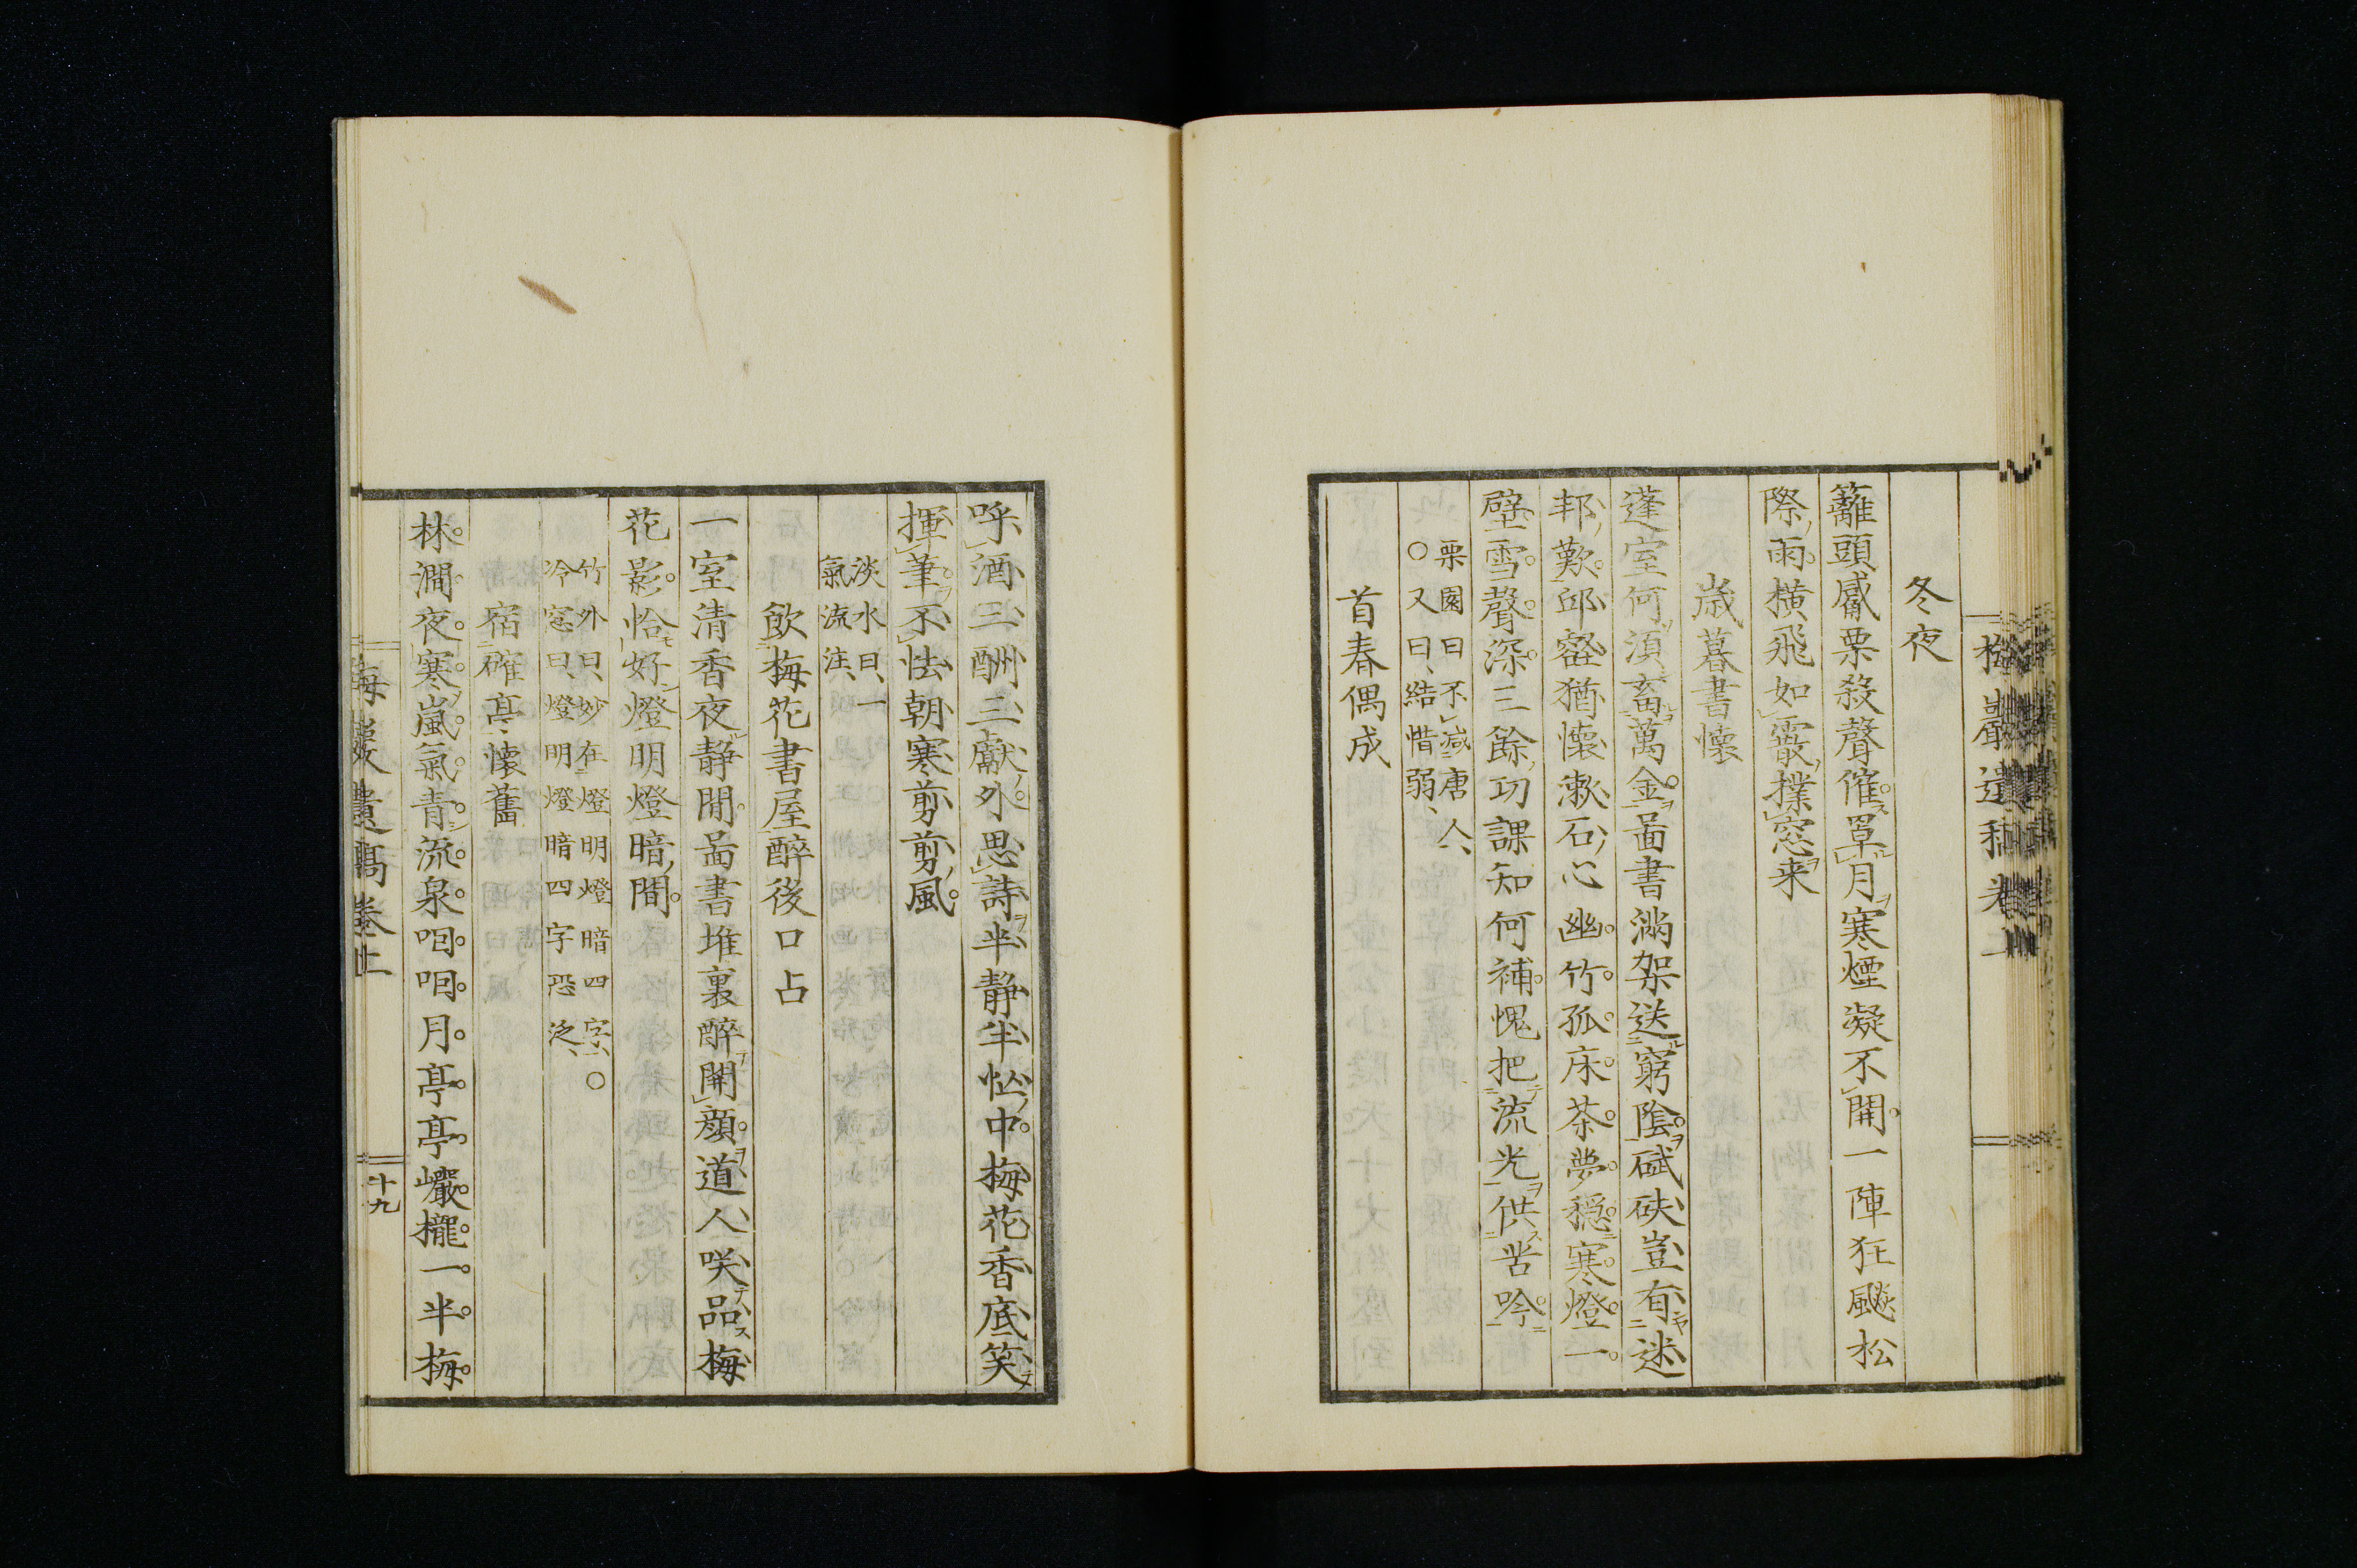 冬夜
籬頭觱栗殺聲催罩月寒煙凝不開一陣狂颷松
際雨橫飛如霰撲窓来
歳暮書懷
蓬室何須畜萬金啚書滿架送窮陰碔砆豈有迷
邦歎邱壑猶懷漱石心幽竹孤床茶夢穏寒燈一
壁雪聲深三餘功課知何補愧把流光供苦吟
栗園曰不減唐人、
○又曰、結惜弱、
首春偶成
呼酒三酬三獻外思詩半靜半忙中梅花香底笑
揮筆不怯朝寒剪剪風
淡水曰、一
氣流注、
飲梅花書屋醉後口占
一室清香夜靜閒啚書堆裏醉開顔道人咲品梅
花影恰好燈明燈暗間
竹外曰、妙在燈明燈暗四字、○
冷窓曰、燈明燈暗四字恐泛、
宿確亭懷舊
林澗夜寒嵐氣青流泉咽咽月亭亭巗櫳一半梅
梅巖遺稿卷上
十九